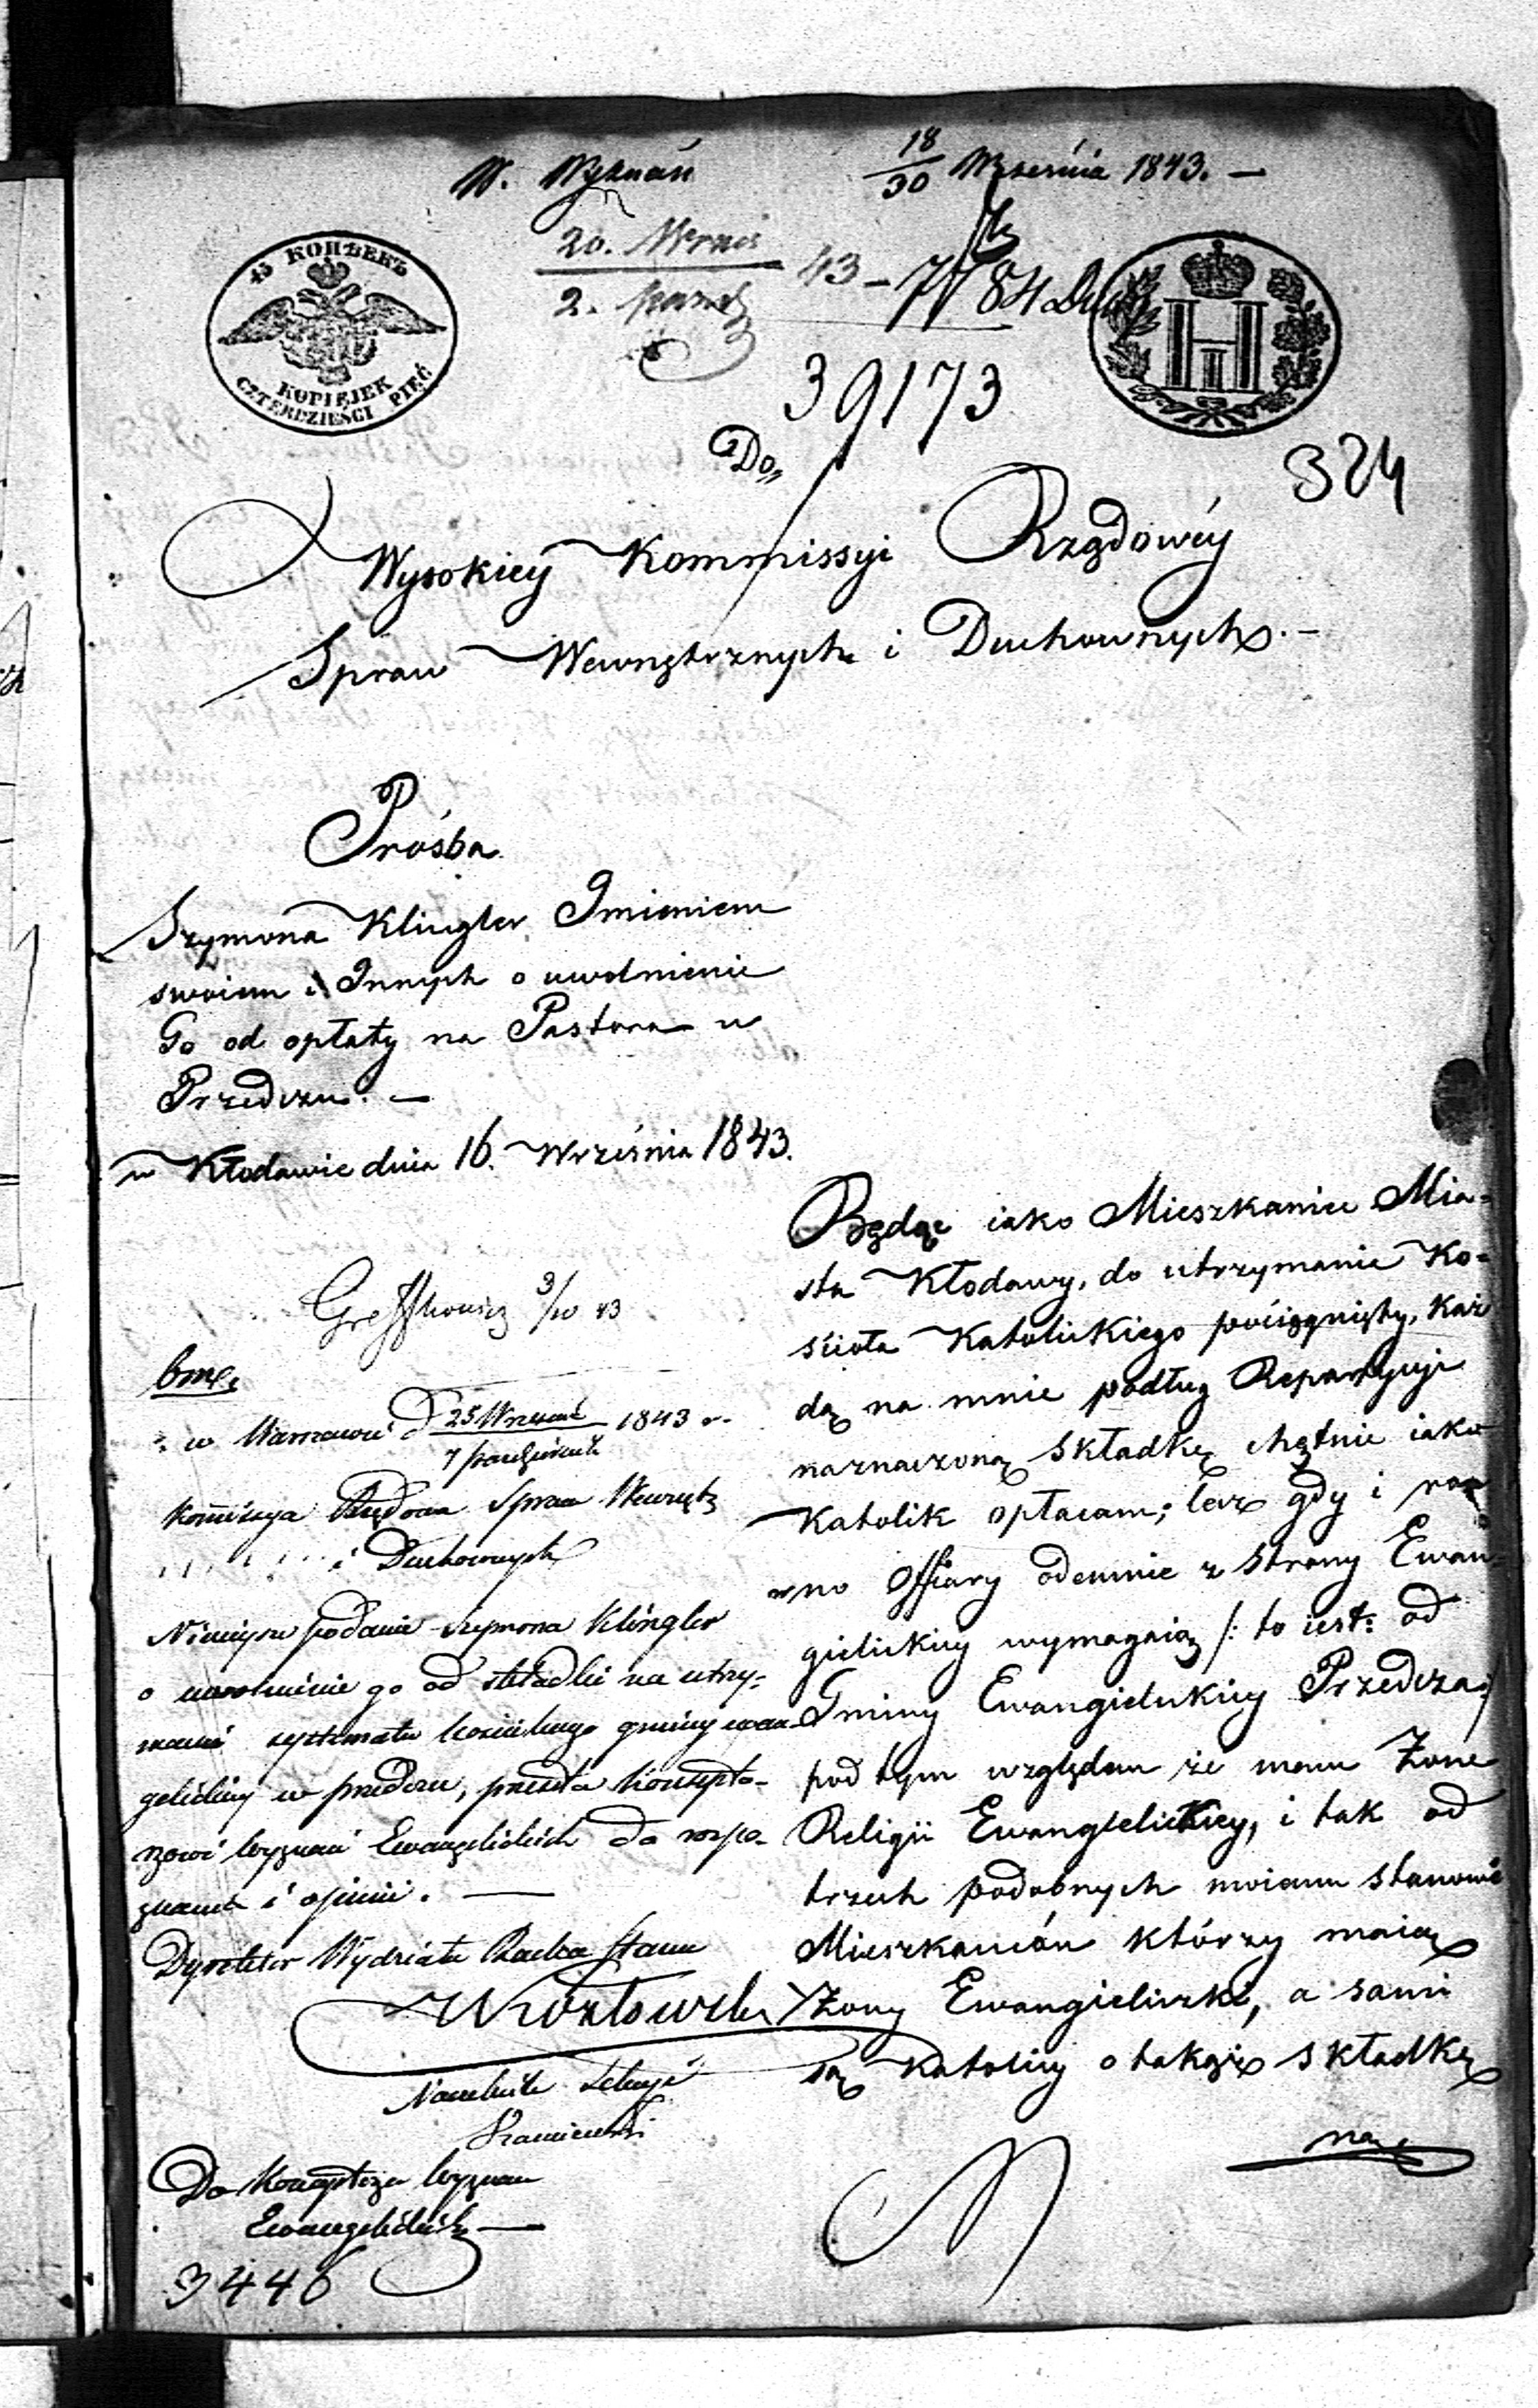 W. Wyznań
18/30 Września 1843. —
20. Wrześ
2. Paźd
43 – 7784 Duch
45 КОПѢЕКЪ
KOPIEJEK
CZTERDZIEŚCI PIĘĆ
H
III
39173
324
Do,,
Wysokiey Kommissyi Rządowéy
Spraw Wewnętrznych i Duchownych. —
Prośba
Szymona Klingler Imieniem
swoiem i Innych o uwolnienie
Go od opłaty na Pastora w
Przedczu. —
w Kłodawie dnia 16. Września 1843.
3/10 43
w Warszawie d 25 Wrześnie 1843 r.
7 Październik
Kommissya Rządowa Spraw Wewnętz
i Duchownych
Ninieysze podanie Szymona Klingler
o uwolnienie go od składki na utrzy-
manie systematu kościelnego gminy ewan-
gelickiey w Przedczu, przesyła Konsysto-
rzowi Wyznań Ewangelickich do rozpo-
znania i opinii. —
Dyrektor Wydziału Radca Stanu
Kozłowski
Naczelnik Sekcyi
Do Konsystorza Wyznań
Ewangelickich —
3446
Będąc iako Mieszkaniec Mia-
sta Kłodawy, do utrzymanie Ko-
ścioła Katolickiego pociągnięty, każ
dą na mnie podług Repartycyi
naznaczoną składkę chętnie iako
Katolik opłacam; lecz gdy i ró
wno Offiary odemnie z strony Ewan-
gielickiey wymagaią /: to iest: od
Gminy Ewangielickiey Przedcza :/
pod tym względem że mam Żone
Religii Ewangielickiey, i tak od
trzech podobnych moiemu stanowi
Mieszkańców którzy maią
Żony Ewangieliczki, a sami
są Katolicy o takąż składkę
na